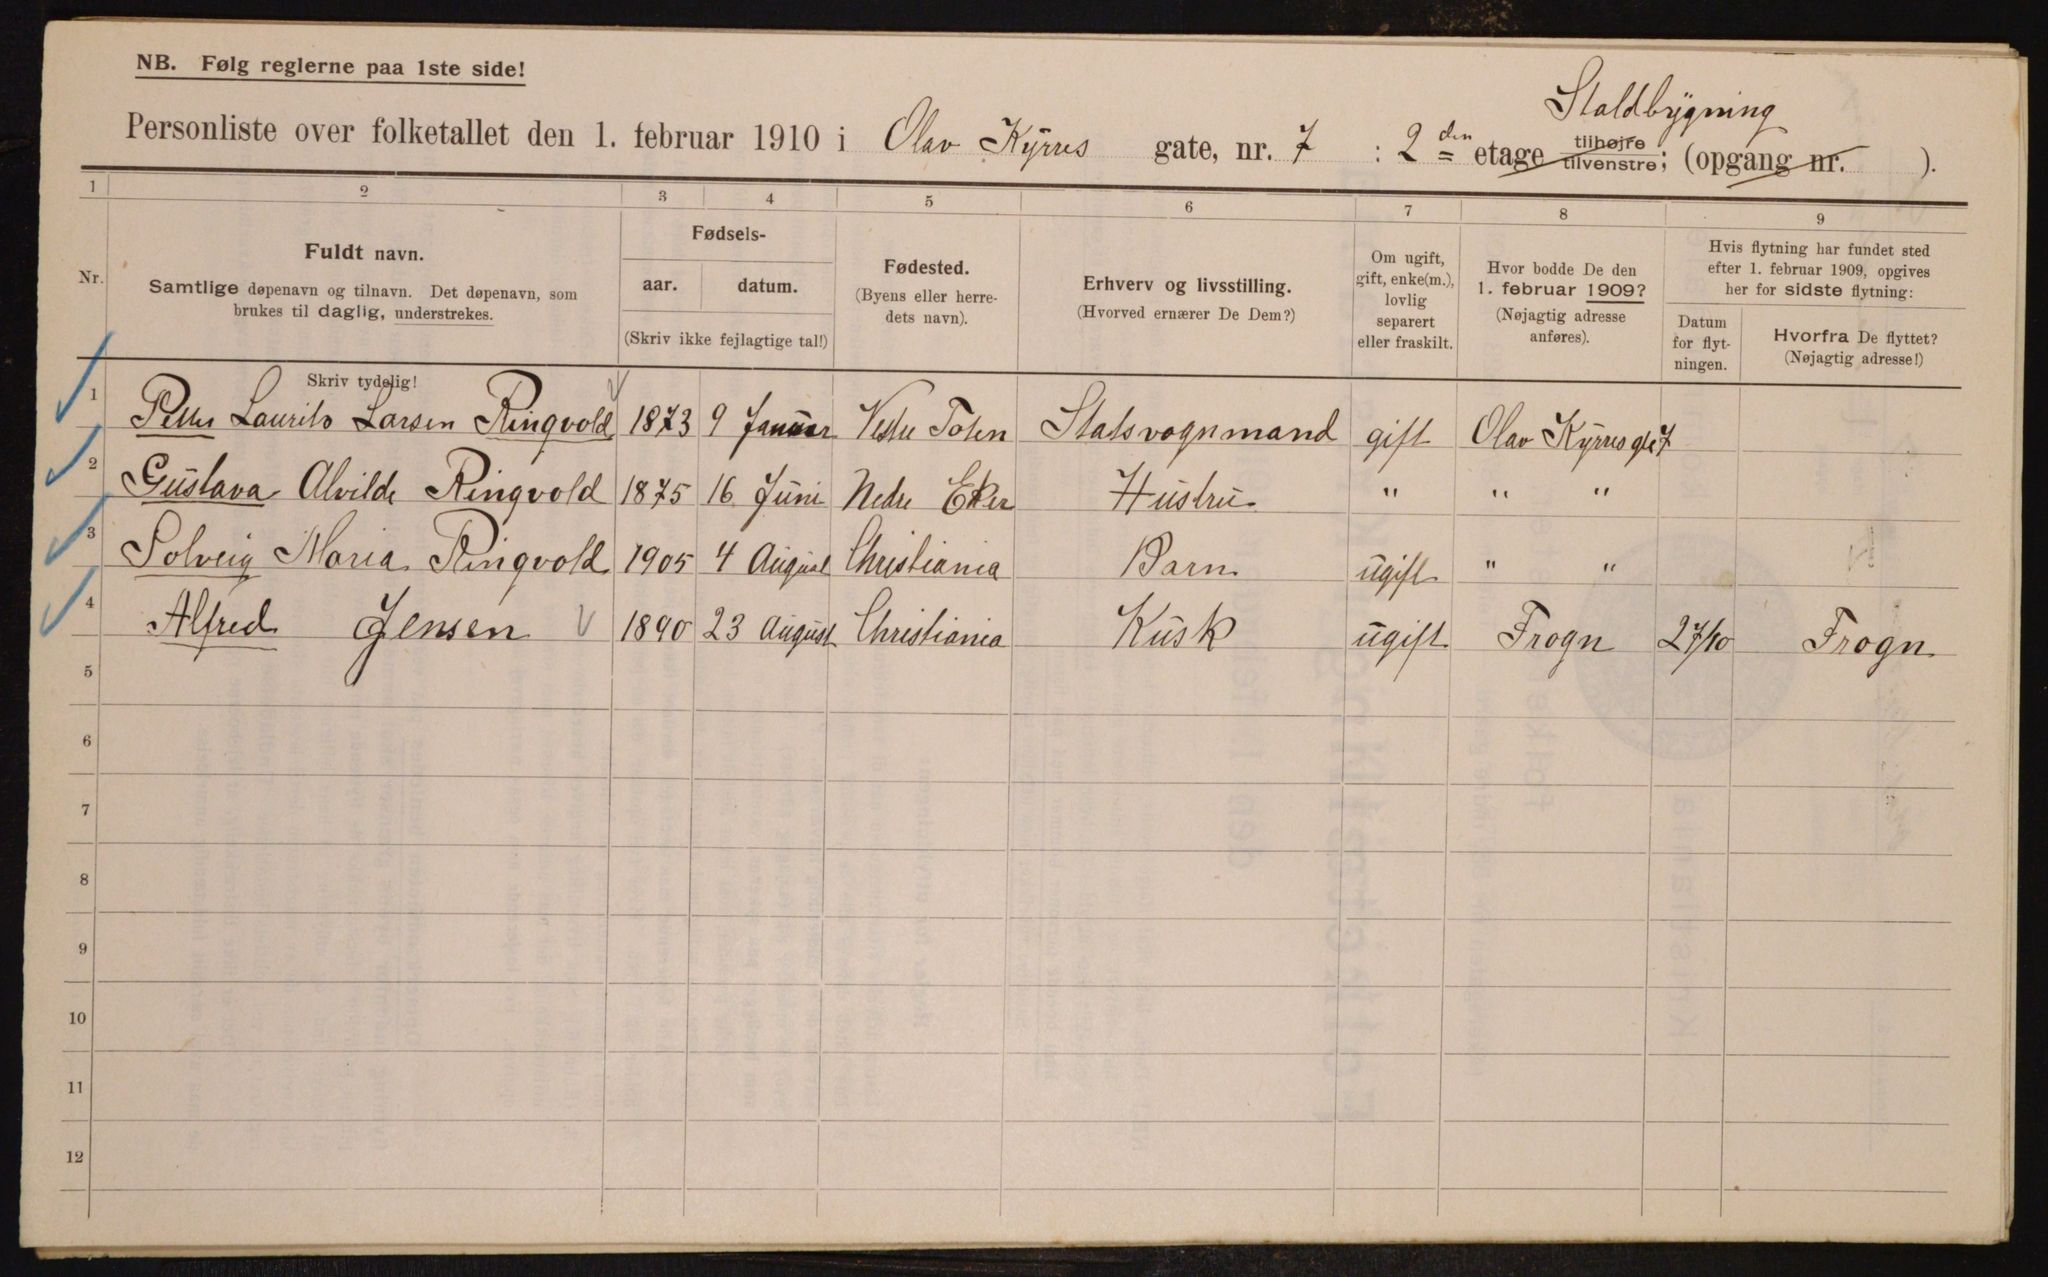 NB. Følg reglerne paa 1ste side!
Staldbygning
Personliste over folketallet den 1. februar 1910 i Olav Kyrres gate, nr. 7 : 2 den etage tilhøjre tilvenstre; (opgang nr. ).
1 2 3 4 5 6 7 8 9
Nr.
Fuldt navn.
Samtlige døpenavn og tilnavn. Det døpenavn, som
brukes til daglig, understrekes.
Skriv tydelig!
Fødsels-
aar. datum.
(Skriv ikke fejlagtige tal!)
Fødested.
(Byens eller herre-
dets navn).
Erhverv og livsstilling.
(Hvorved ernærer De Dem?)
Om ugift,
gift, enke(m.),
lovlig
separert
eller fraskilt.
Hvor bodde De den
1. februar 1909?
(Nøjagtig adresse
anføres).
Hvis flytning har fundet sted
efter 1. februar 1909, opgives
her for sidste flytning:
Datum
for flyt-
ningen.
Hvorfra De flyttet?
(Nøjagtig adresse!)
1 Petter Laurits Larsen Ringvold 1873 9 Januar Vestre Toten Stadsvognmand gift Olav Kyrres gt 7
2 Gustava Alvilde Ringvold 1875 16 Juni Nedre Eker Hustru " " "
3 Solveig Maria Ringvold 1905 4 August Christiania Barn ugift " "
4 Alfred Jensen 1890 23 August Christiania Kusk ugift Frogn 27/10 Frogn
5
6
7
8
9
10
11
12